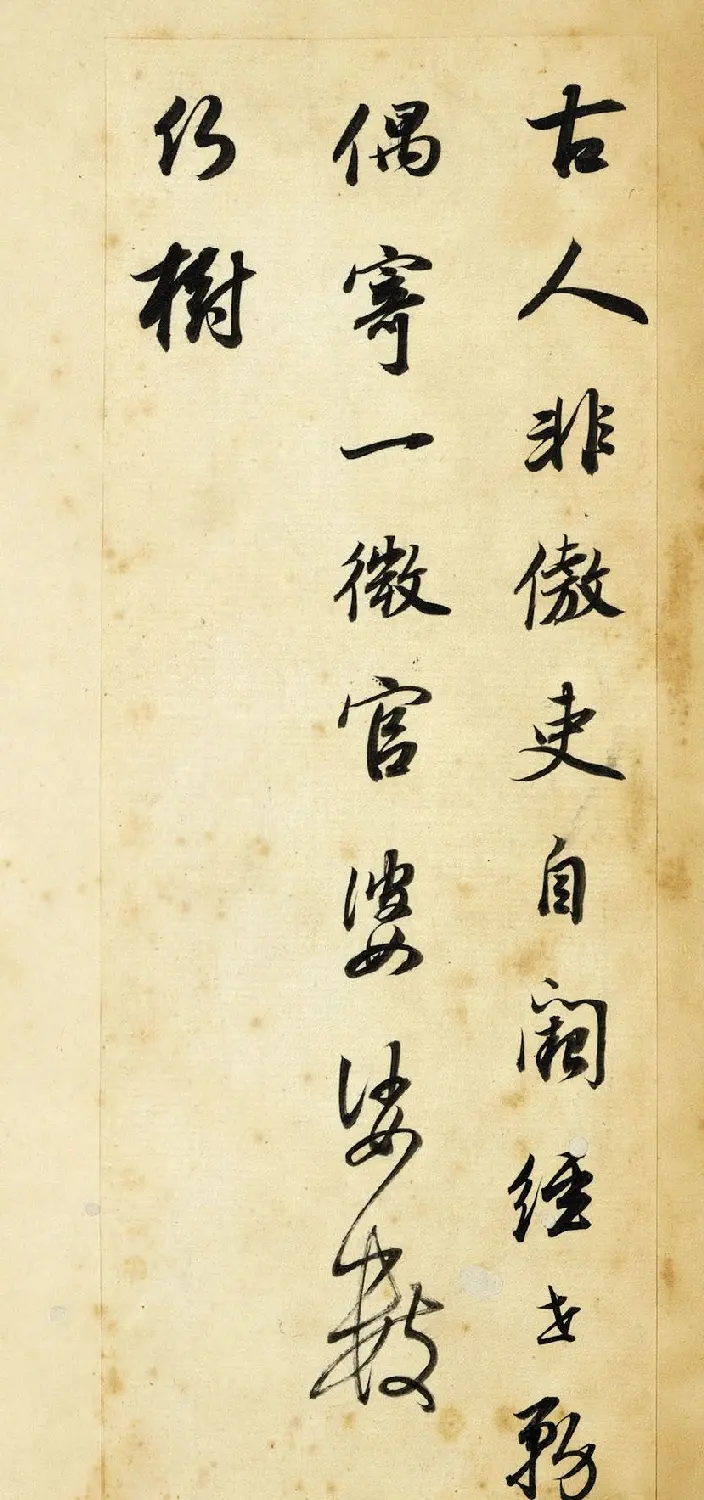 古人非傲吏自闕經世務
偶寄一微官婆娑數
仍樹